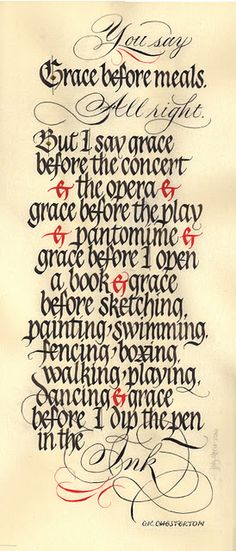 You say
Grace before meals.
All right.
But I say grace
before the concert
& the opera &
grace before the play
& pantomime &
grace before I open
a book & grace
before sketching,
painting, swimming,
fencing, boxing,
walking, playing,
dancing & grace
before I dip the pen
in the Ink
G.K. CHESTERTON